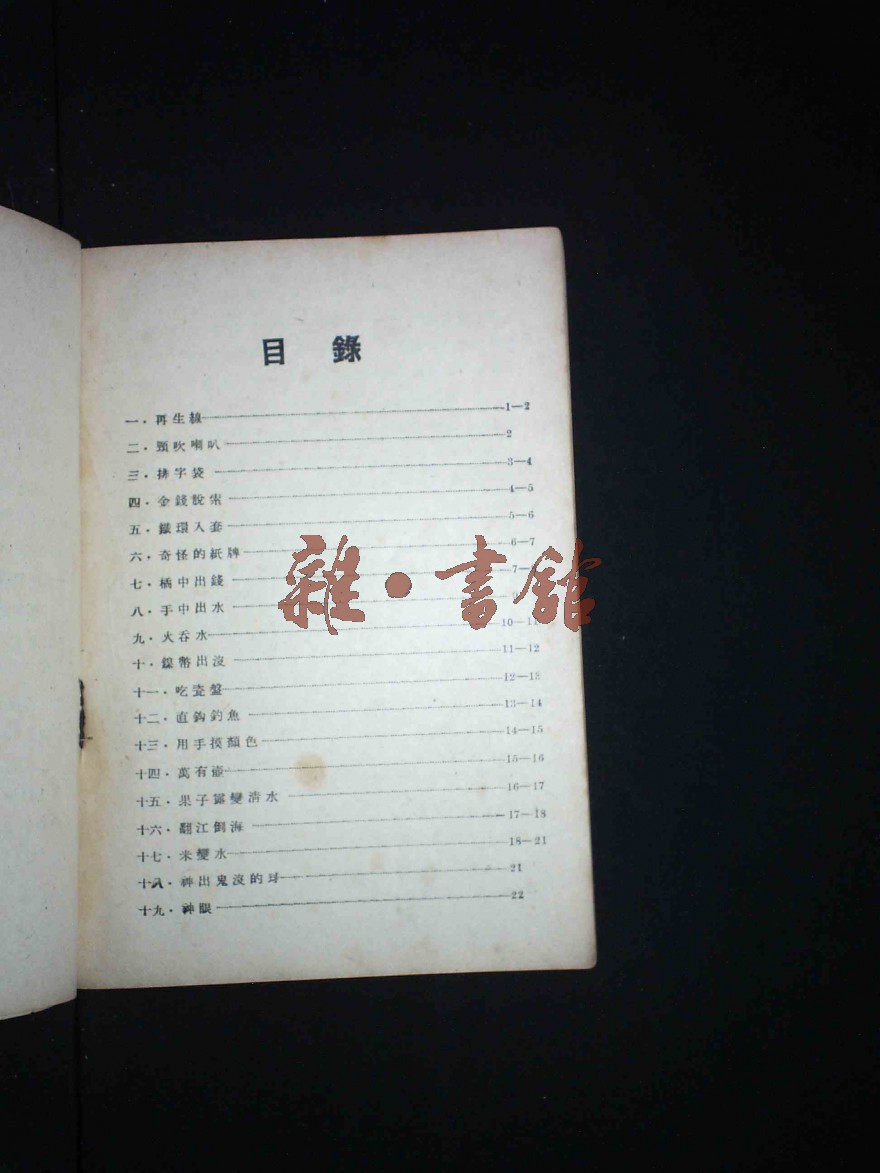 目錄
一．再生線 1—2
二．頸吹喇叭 2
三．排字袋 3—4
四．金錢脫索 4—5
五．鐵環入套 5—6
六．奇怪的紙牌 6—7
七．橘中出錢 7—
八．手中出水
九．火吞水 10—11
十．鎳幣出沒 11—12
十一．吃瓷盤 12—13
十二．直鈎釣魚 13—14
十三．用手摸顏色 14—15
十四．萬有壺 15—16
十五．果子露變清水 16—17
十六．翻江倒海 17—18
十七．米變水 18—21
十八．神出鬼沒的球 21
十九．神眼 22
雜·書館